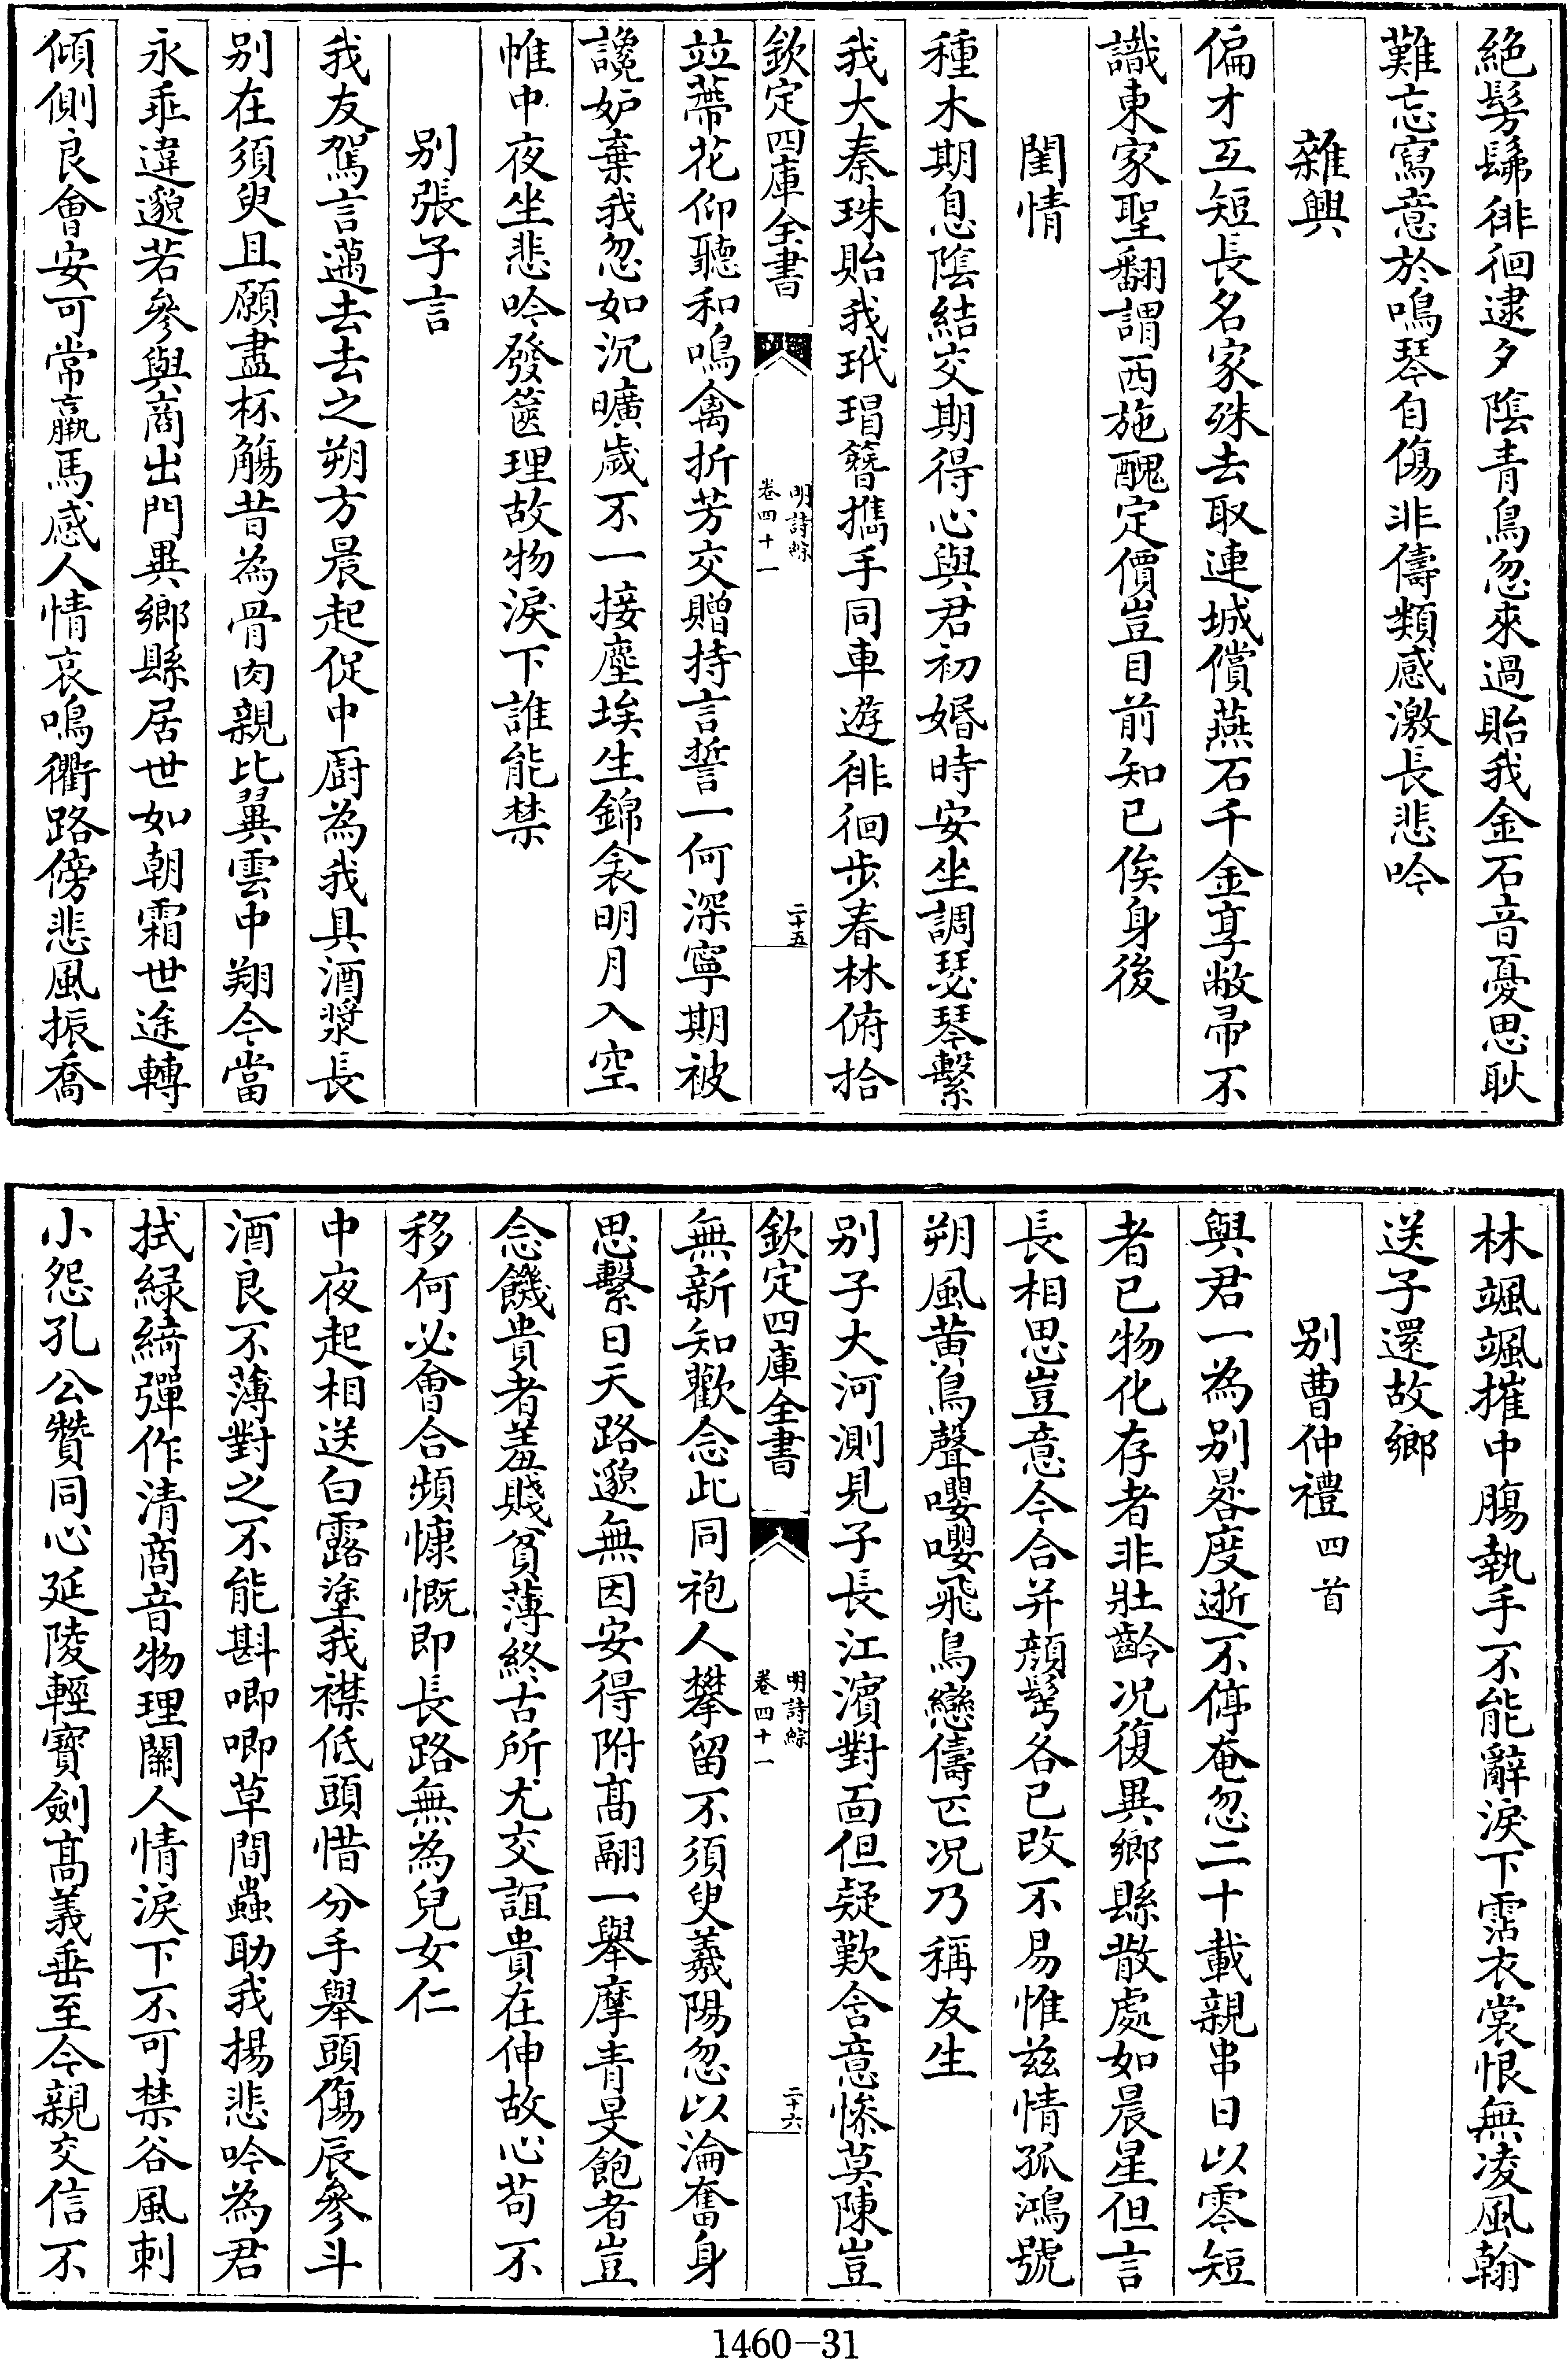 絶髣髴徘徊逮夕陰青鳥忽來過貽我金石音憂思耿
難忘寫意於鳴琴自傷非儔類感激長悲吟
雜興
偏才互短長名家殊去取連城償燕石千金享敝帚不
識東家聖翻謂西施醜定價豈目前知已俟身後
閨情
種木期息陰結交期得心與君初婚時安坐調瑟琴繫
我大秦珠貽我玳瑁簪攜手同車遊徘徊步春林俯拾
欽定四庫全書
明詩綜
卷四十一
二十五
竝蔕花仰聽和鳴禽折芳交贈持言誓一何深寧期被
讒妒棄我忽如沉曠歲不一接塵埃生錦衾明月入空
帷中夜坐悲吟發篋理故物淚下誰能禁
别張子言
我友駕言邁去去之朔方晨起促中厨為我具酒漿長
别在須臾且願盡杯觴昔為骨肉親比翼雲中翔今當
永乖違邈若參與商出門異鄉縣居世如朝霜世途轉
傾側良會安可常羸馬感人情哀鳴衢路傍悲風振喬
林颯颯摧中腸執手不能辭淚下霑衣裳恨無凌風翰
送子還故鄉
别曹仲禮四首
與君一為别晷度逝不停奄忽二十載親串日以零短
者已物化存者非壯齡况復異鄉縣散處如晨星但言
長相思豈意今合并顔髩各已改不易惟兹情孤鴻號
朔風黄鳥聲嚶嚶飛鳥戀儔匹况乃稱友生
别子大河測見子長江濱對面但疑歎含意慘莫陳豈
欽定四庫全書
明詩綜
卷四十一
二十六
無新知歡念此同袍人攀留不須臾羲陽忽以淪奮身
思繫日天路邈無因安得附髙翮一舉摩青旻飽者豈
念饑貴者羞賤貧薄終古所尤交誼貴在伸故心苟不
移何必會合頻慷慨即長路無為兒女仁
中夜起相送白露塗我襟低頭惜分手舉頭傷辰參斗
酒良不薄對之不能斟唧唧草間蟲助我揚悲吟為君
拭緑綺彈作清商音物理關人情淚下不可禁谷風刺
小怨孔公贊同心延陵輕寶劍髙義垂至今親交信不
1460-31